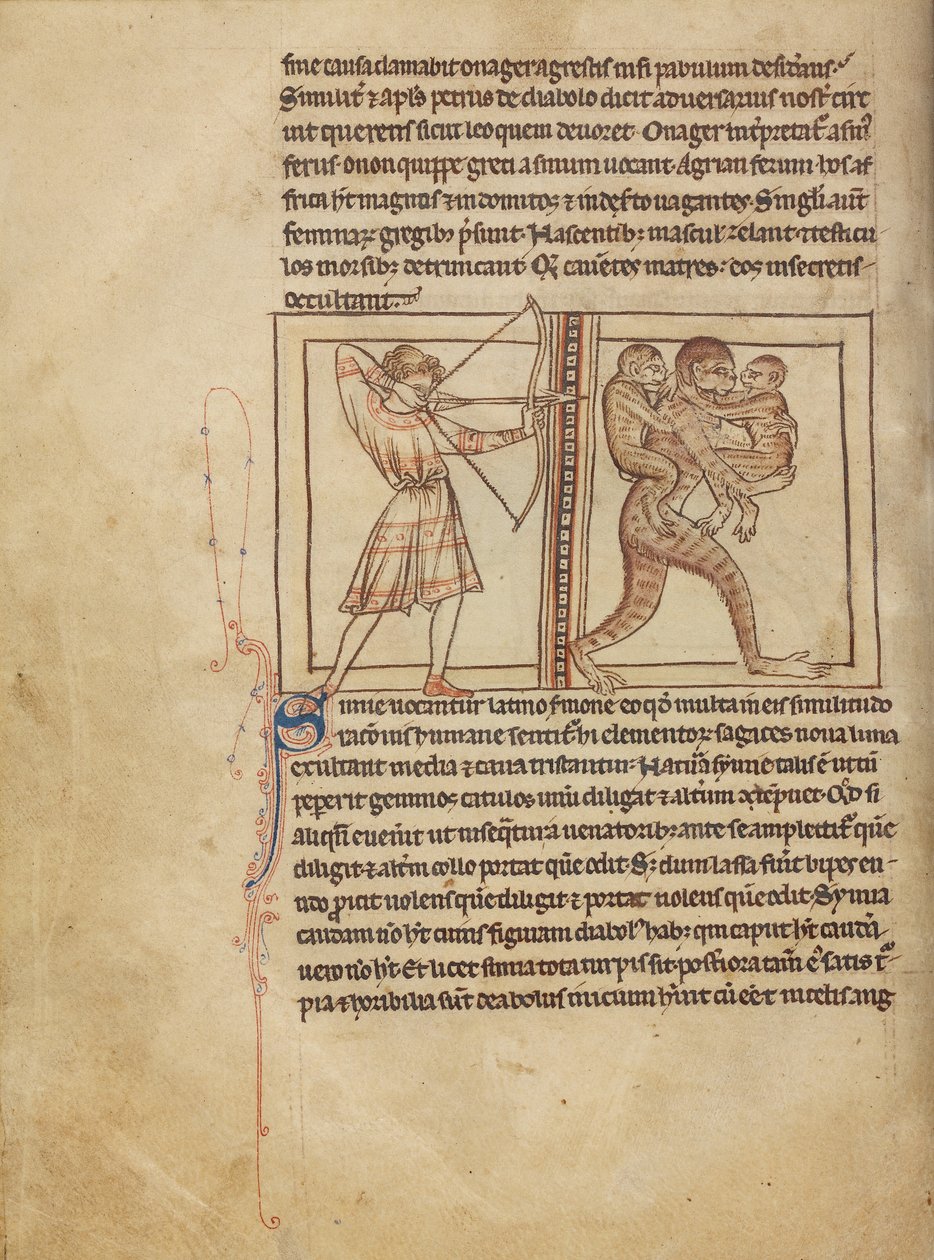 sine causa clamabit onager agrestis nisi pabulum desid̾ans·
Similit̾ ⁊ apl̅s petrus de diabolo dicit aduersarius nost̾ circ
uit querens sicut leo quem deuoret· Onager int̾pretat᷑ asin⁹
ferus· onon quippe greci asinum uocant· Agrian ferum· hos af
frica h̅t magnos ⁊ indomitos ⁊ in des̾to uagantes· Singl̅i aut̅
feminaꝝ gregibꝫ p̾sunt· Nascentibꝫ mascul̅ zelant· ⁊ testicu
los morsibꝫ detruncant· Qꝫ cauentes matres· eos in secretis
occultant·
Simie uocantur latino s̾mone eo qd̅ multa in eis similitudo
rac̅onis humane sentit᷑ hi elementoꝝ sagaces noua luna
exultant media ⁊ caua tristantur· Nat᷑a symie talis ē ut cū
pep̾erit gemmos catulos unū diligat ⁊ alt̾um 9te̅pnet· Qd̅ si
aliqn̅ euen̾it ut inseq̅tur a uenatoribꝫ ante se amplectit᷑ que̅
diligit ⁊ alt̾m collo portat que̅ odit· Sꝫ dum lassa fu̾it bipes eu
ndo ꝓicit uolens que̅ diligit ⁊ portat nolens que̅ odit· Symia
caudam n̅o h̅t cuius figuram diabol⁹ habꝫ qui caput h̅t caudā
uero n̅o h̅t· Et licet simia tota turpis sit· post̾iora tam̅ e⁹ satis t᷑
pia ⁊ horibilia su̅t deabolus inicium h̅uit cū eēt in celis ang